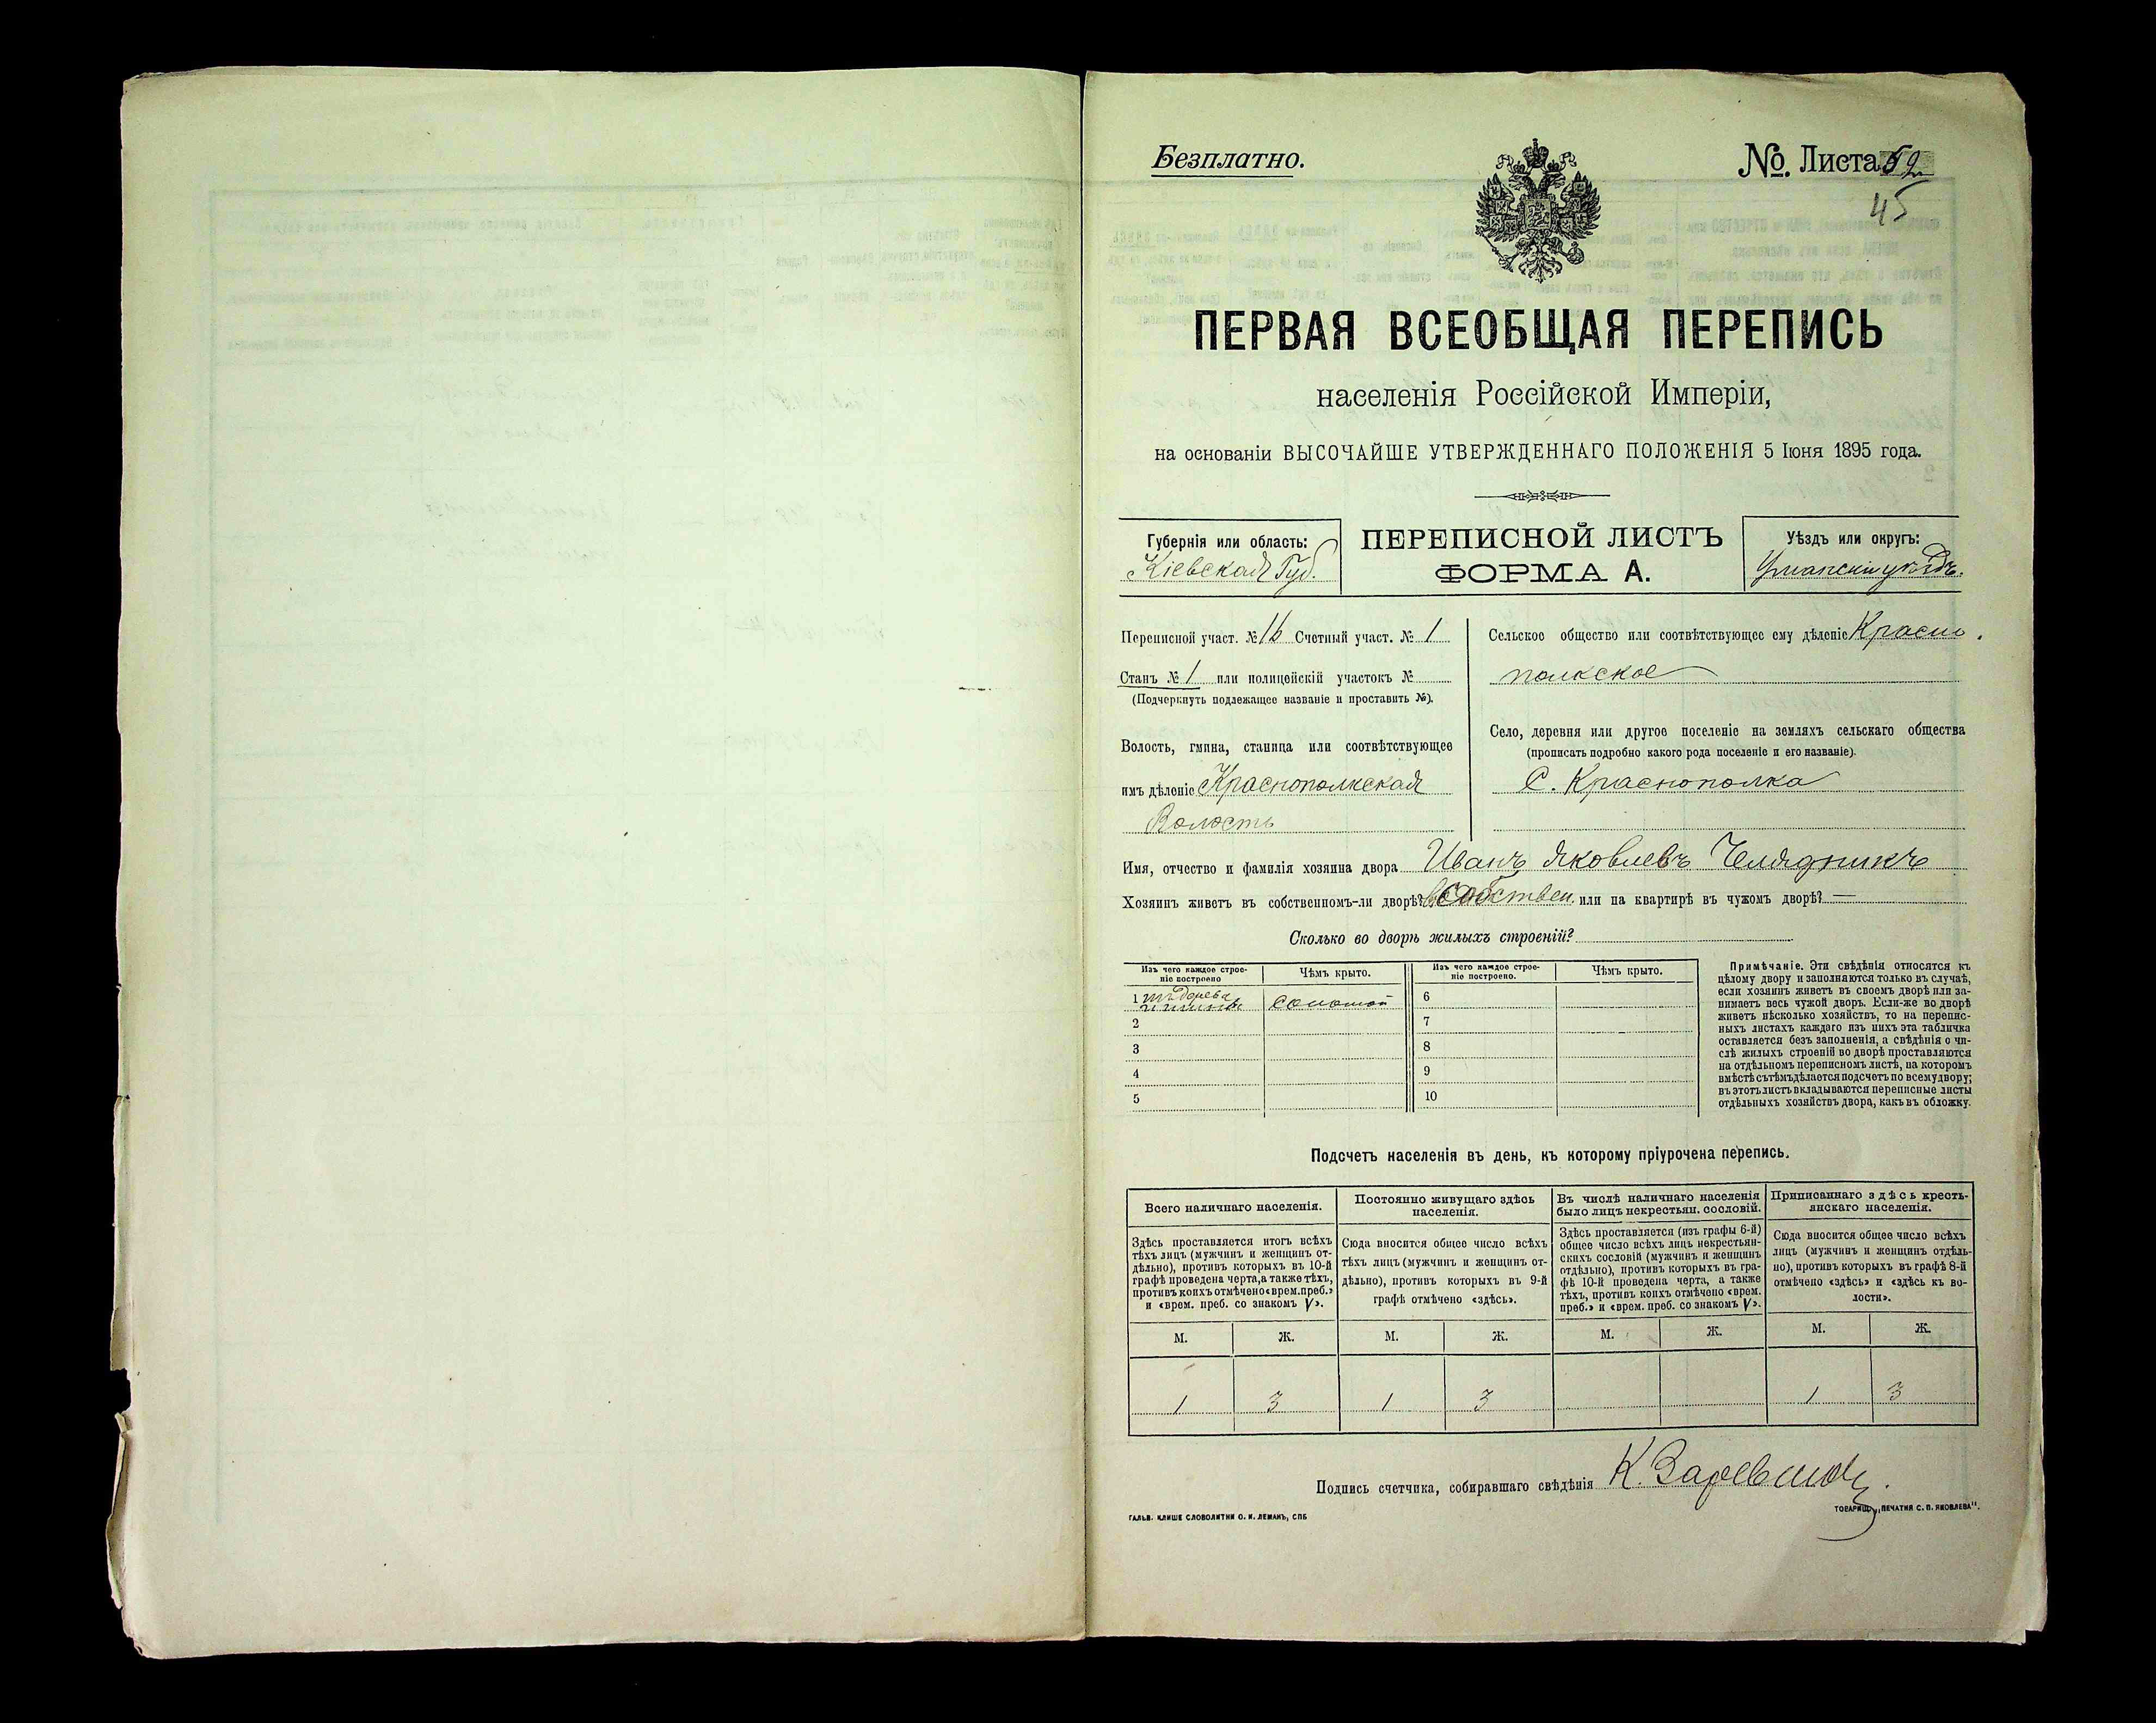 Безплатно.
№ Листа 52
45
ПЕРВАЯ ВСЕОБЩАЯ ПЕРЕПИСЬ
населенія Россійской Имперіи,
на основаніи ВЫСОЧАЙШЕ УТВЕРЖДЕННАГО ПОЛОЖЕНІЯ 5 Іюня 1895 года.
Губернія или область:
Кіевская Губ.
ПЕРЕПИСНОЙ ЛИСТЪ
ФОРМА А.
Уѣздъ или округъ:
Уманскій уѣздъ.
Переписной участ. № 16 Счетный участ. № 1
Станъ № 1 или полицейскій участокъ №
(Подчеркнуть подлежащее названіе и проставить №).
Волость, гмина, станица или соотвѣтствующее
имъ дѣленіе Краснополкская
Волость
Сельское общество или соотвѣтствующее ему дѣленіе Красно
полкское
Село, деревня или другое поселеніе на земляхъ сельскаго общества
(прописать подробно какого рода поселеніе и его названіе).
С. Краснополка
Имя, отчество и фамилія хозяина двора Иванъ Яковлевъ Челядникъ
Хозяинъ живетъ въ собственномъ-ли дворѣ? въ собствен. или на квартирѣ въ чужомъ дворѣ? —
Сколько во дворѣ жилыхъ строеній?
Изъ чего каждое строе-
ніе построено
Чѣмъ крыто.
Изъ чего каждое строе-
ніе построено.
Чѣмъ крыто.
1 изъ дерева
и глины соломой
2
3
4
5
6
7
8
9
10
Примѣчаніе. Эти свѣдѣнія относятся къ
цѣлому двору и заполняются только въ случаѣ,
если хозяинъ живетъ въ своемъ дворѣ или за-
нимаетъ весь чужой дворъ. Если-же во дворѣ
живетъ нѣсколько хозяйствъ, то на перепис-
ныхъ листахъ каждаго изъ нихъ эта табличка
оставляется безъ заполненія, а свѣдѣнія о чи-
слѣ жилыхъ строеній во дворѣ проставляются
на отдѣльномъ переписномъ листѣ, на которомъ
вмѣстѣ съ тѣмъ дѣлается подсчетъ по всему двору;
въ этотъ листъ вкладываются переписные листы
отдѣльныхъ хозяйствъ двора, какъ въ обложку.
Подсчетъ населенія въ день, къ которому пріурочена перепись.
Всего наличнаго населенія.
Здѣсь проставляется итогъ всѣхъ
тѣхъ лицъ (мужчинъ и женщинъ от-
дѣльно), противъ которыхъ въ 10-й
графѣ проведена черта, а также тѣхъ,
противъ коихъ отмѣчено «врем. преб.»
и «врем. преб. со знакомъ V».
Постоянно живущаго здѣсь
населенія.
Сюда вносится общее число всѣхъ
тѣхъ лицъ (мужчинъ и женщинъ от-
дѣльно), противъ которыхъ въ 9-й
графѣ отмѣчено «здѣсь».
Въ числѣ наличнаго населенія
было лицъ некрестьян. сословій.
Здѣсь проставляется (изъ графы 6-й)
общее число всѣхъ лицъ некрестьян-
скихъ сословій (мужчинъ и женщинъ
отдѣльно), противъ которыхъ въ гра-
фѣ 10-й проведена черта, а также
тѣхъ, противъ коихъ отмѣчено «врем.
преб.» и «врем. преб. со знакомъ V».
Приписаннаго здѣсь кресть-
янскаго населенія.
Сюда вносится общее число всѣхъ
лицъ (мужчинъ и женщинъ отдѣль-
но), противъ которыхъ въ графѣ 8-й
отмѣчено «здѣсь» и «здѣсь къ во-
лости».
М. Ж. М. Ж. М. Ж. М. Ж.
1 3 1 3 1 3
Подпись счетчика, собиравшаго свѣдѣнія К.
ГАЛЬВ. КЛИШЕ СЛОВОЛИТНИ О. И. ЛЕМАНЪ, СПБ
ТОВАРИЩ. „ПЕЧАТНЯ С. П. ЯКОВЛЕВА“.